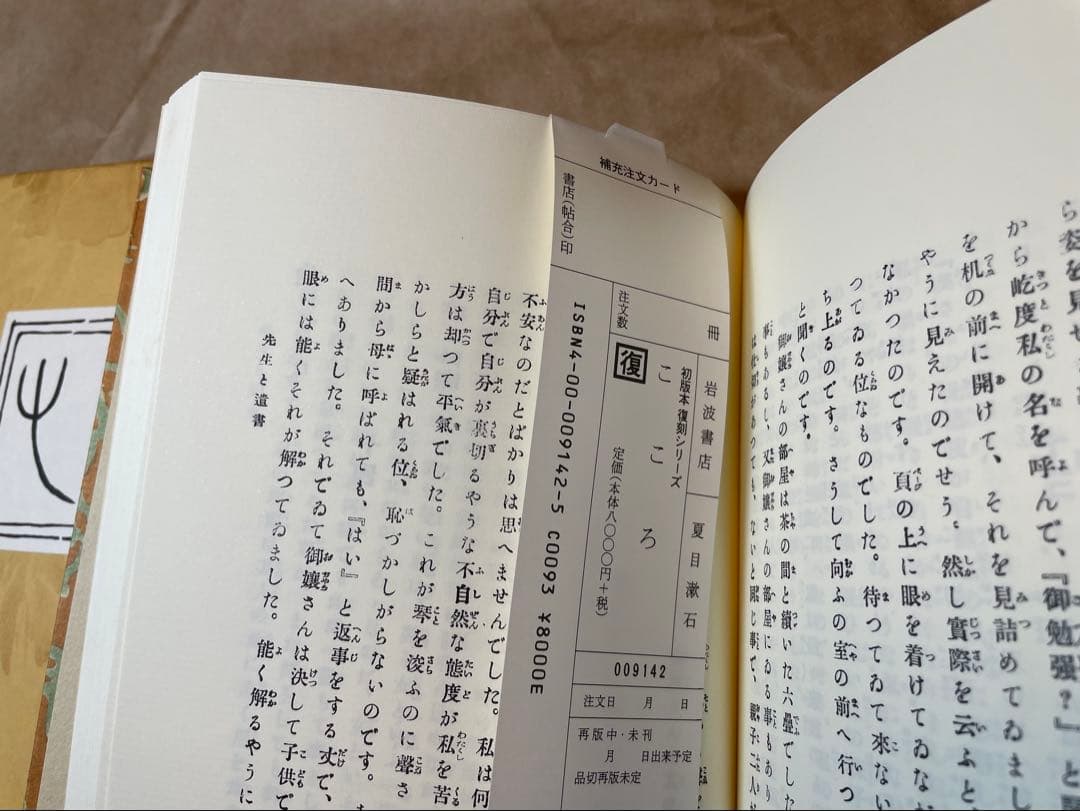 ら姿を見せ
から屹度私の名を呼んで、『御勉强?』と
を机の前に開けて、それを見詰めてゐまし
やうに見えたのでせう。然し實際を云ふと
なかつたのです。頁の上に眼を着けてゐな
つてゐる位なものでした。待つてゐて來ない
ち上るのです。さうして向ふの室の前へ行つ
と聞くのです。
御嬢さんの部屋は茶の間と續いた六疊でした
事もあるし、又御嬢さんの部屋にゐる事もあり
は仕切があつても、ないと同じ事で、親子二人が
補充注文カード
書店(帖合)印
注文数
冊
岩波書店
夏目漱石
初版本復刻シリーズ
こころ
復
定価(本体八〇〇〇円+税)
ISBN4-00-009142-5 C0093 ¥8000E
009142
注文日 月 日
再版中・未刊
月 日出来予定
品切再版未定
不安なのだとばかりは思へませんでした。私は何
自分で自分が裏切るやうな不自然な態度が私を苦
方は却つて平氣でした。これが琴を浚ふのに聲さ
かしらと疑はれる位、恥づかしがらないのです。
間から母に呼ばれても、『はい』と返事をする丈で、
へありました。それでゐて御嬢さんは決して子供で
眼には能くそれが解つてゐました。能く解るやうに
先生と遺書